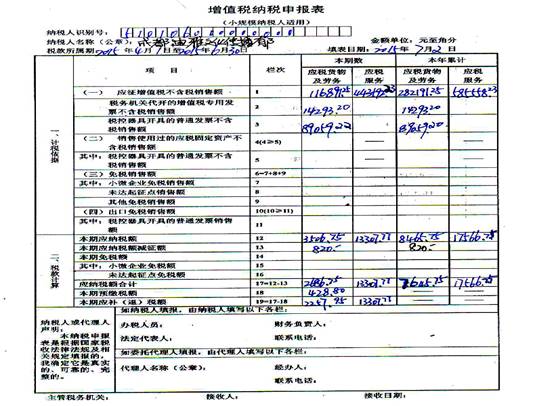 增值税纳税申报表
(小规模纳税人适用)
纳税人识别号：
纳税人名称（公章）： 金额单位：元至角分
税款所属期：2015年4月1日至2015年6月30日 填表日期：2015年7月2日
项 目 栏次 本期数 本年累计
应税货物及劳务 应税服务 应税货物及劳务 应税服务
一、计税依据
（一）应征增值税不含税销售额 1 585558.23
税务机关代开的增值税专用发票不含税销售额 2 14293.20 14293.20
税控器具开具的普通发票不含税销售额 3 89059.22 89059.22
（二）销售使用过的应税固定资产不含税销售额 4(4≥5) — —
其中：税控器具开具的普通发票不含税销售额 5 — —
（三）免税销售额 6=7+8+9
其中：小微企业免税销售额 7
未达起征点销售额 8
其他免税销售额 9
（四）出口免税销售额 10(10≥11)
其中：税控器具开具的普通发票销售额 11
二、税款计算
本期应纳税额 12 3506.75 13307.77 8465.75 17566.75
本期应纳税额减征额 13 820.- 820.-
本期免税额 14
其中：小微企业免税额 15
未达起征点免税额 16
应纳税额合计 17=12-13 2686.75 13307.77 7645.75 17566.75
本期预缴税额 18 428.80 — —
本期应补（退）税额 19=17-18 2257.95 13307.77 — —
纳税人或代理人声明：
本纳税申报表是根据国家税收法律法规及相关规定填报的，我确定它是真实的、可靠的、完整的。
如纳税人填报，由纳税人填写以下各栏：
办税人员： 财务负责人：
法定代表人： 联系电话：
如委托代理人填报，由代理人填写以下各栏：
代理人名称（公章）： 经办人：
联系电话：
主管税务机关： 接收人： 接收日期：